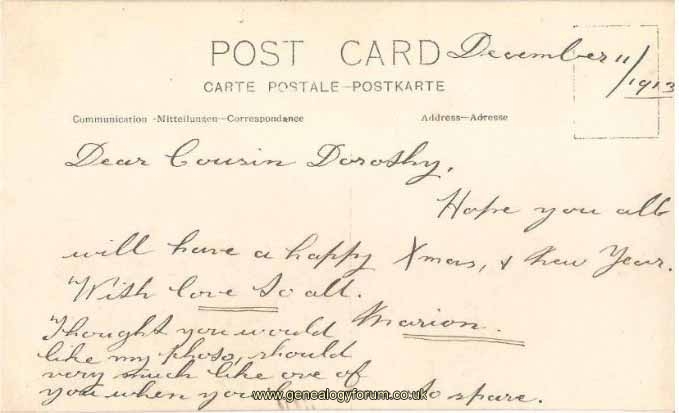 POST CARD
December 11/1913
CARTE POSTALE-POSTKARTE
Communication -Mitteilungen-Correspondance
Address-Adresse
Dear Cousin Dorothy,
Hope you all
will have a happy Xmas, & New Year.
With love to all.
Marion.
Thought you would
like my photo, should
very much like one of
you when you to spare.
www.genealogyforum.co.uk